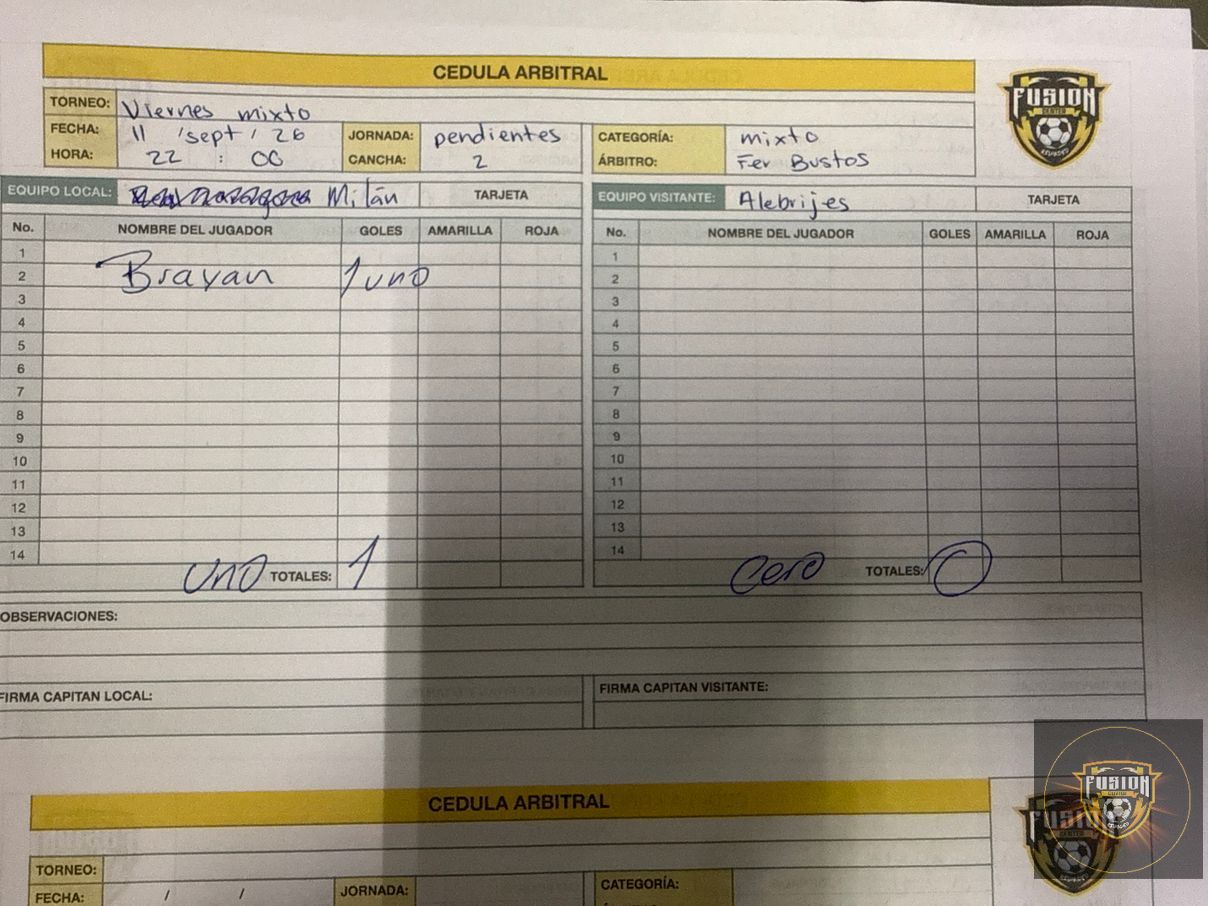 CEDULA ARBITRAL
FUSION
CENTER
TORNEO: Viernes mixto
FECHA: 11 / sept / 26 JORNADA: pendientes CATEGORÍA: mixto
HORA: 22 : 00 CANCHA: 2 ÁRBITRO: Fer Bustos
EQUIPO LOCAL: Milán TARJETA EQUIPO VISITANTE: Alebrijes TARJETA
No. NOMBRE DEL JUGADOR GOLES AMARILLA ROJA No. NOMBRE DEL JUGADOR GOLES AMARILLA ROJA
1 1
2 Brayan 1 uno 2
3 3
4 4
5 5
6 6
7 7
8 8
9 9
10 10
11 11
12 12
13 13
14 14
uno TOTALES: 1 cero TOTALES: 0
OBSERVACIONES:
FIRMA CAPITAN LOCAL: FIRMA CAPITAN VISITANTE:
CEDULA ARBITRAL
FUSION
FUSION
TORNEO:
FECHA: / / JORNADA: CATEGORÍA: